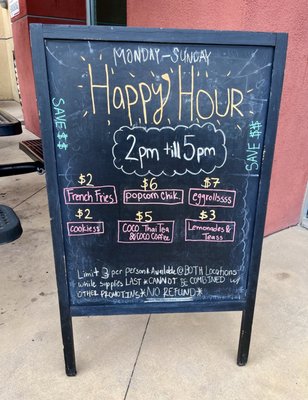 MONDAY-SUNDAY
Happy Hour
SAVE $$
SAVE $$
2pm till 5pm
$2
$6
$7
French Fries
popcorn chik.
eggrollssss
$2
$5
$3
cookiess
COCO Thai Tea
& COCO Coffee
Lemonades &
Teass
Limit 3 per person & Available @ BOTH Locations
while supplies LAST * CANNOT BE COMBINED w/
OTHER PROMOTINS *NO REFUND*